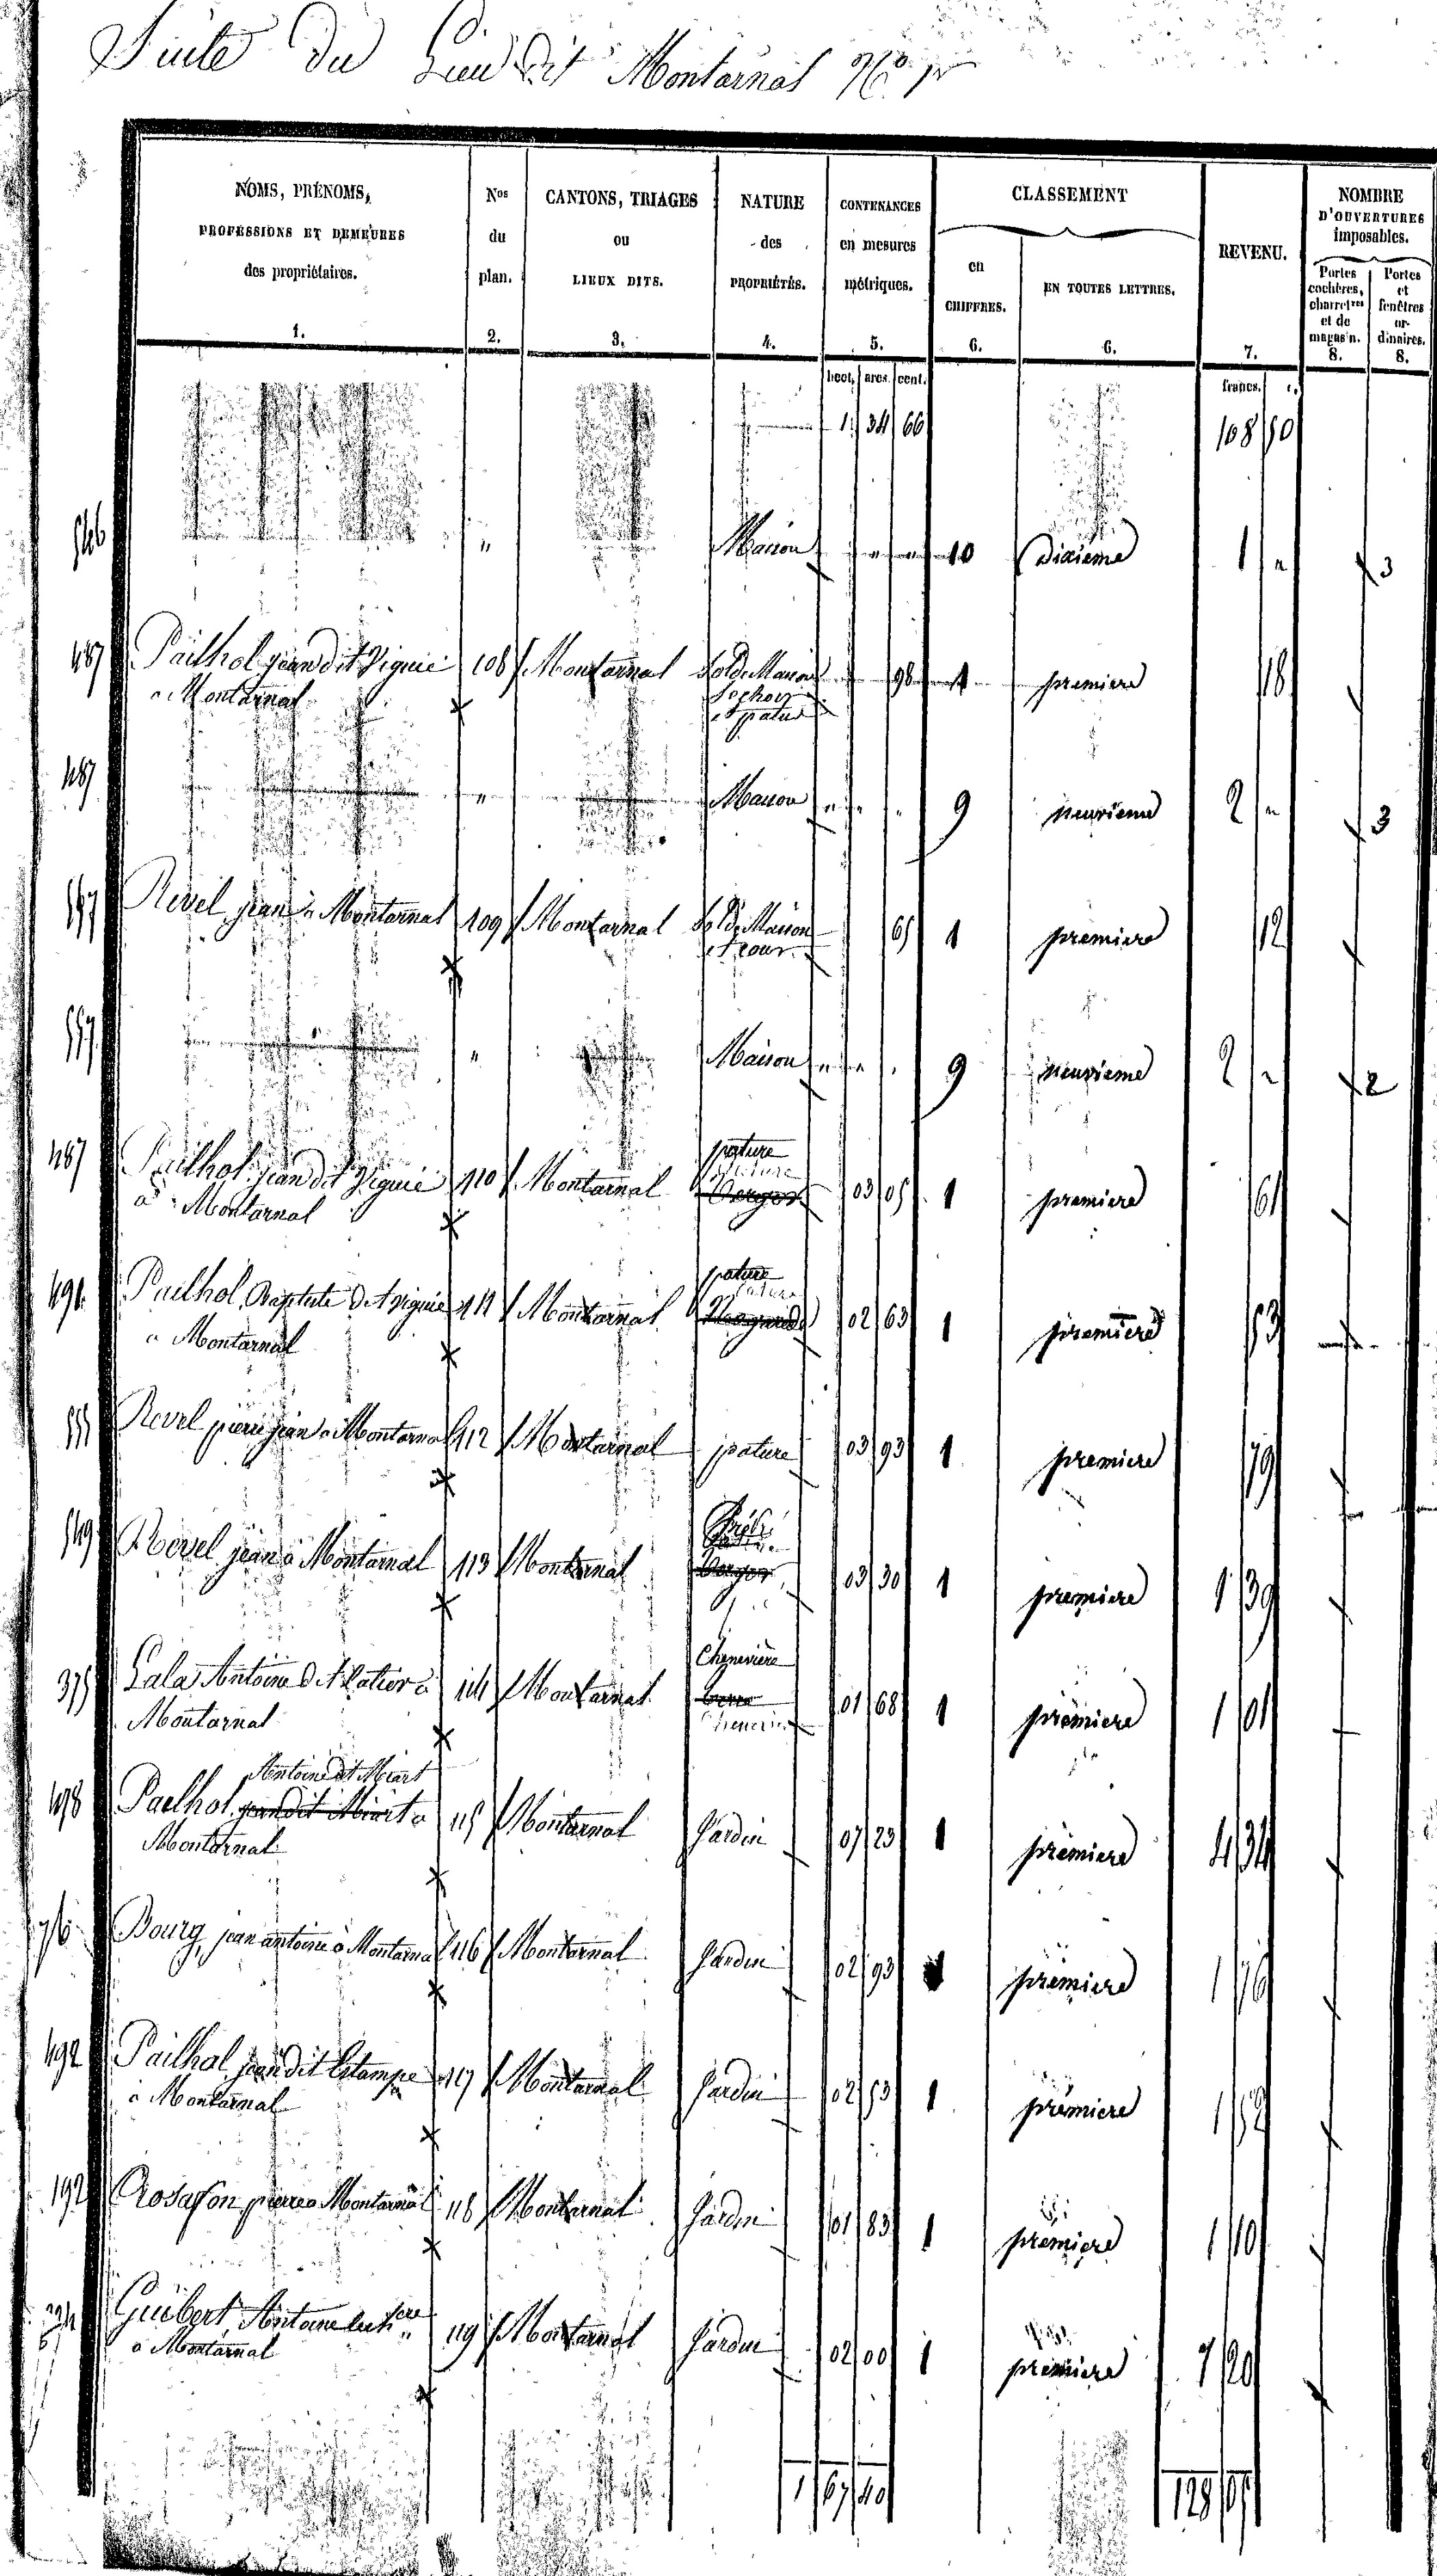 Suite du Lieu dit Montarnal
NOMS, PRÉNOMS, PROFESSIONS ET DEMEURES des propriétaires. 1.
Nos du plan. 2.
CANTONS, TRIAGES ou LIEUX DITS. 3.
NATURE des PROPRIÉTÉS. 4.
CONTENANCES en mesures métriques. 5.
CLASSEMENT
en CHIFFRES. 6.
EN TOUTES LETTRES. 6.
REVENU. 7.
NOMBRE D'OUVERTURES imposables.
Portes cochères, charretres et de magasin. 8.
Portes et fenêtres or- dinaires. 8.
hect. ares. cent. francs. c.
1 34 66 108 50
546 " Maison " " 10 Dixieme 1 " 3
487 Pailhol jean dit Viguié 108 Montarnal Sol de Maison 98 1 premiere 18
a Montarnal Sechoir
et patus
487 " Maison " " " 9 neuvieme 2 " 3
557 Revel jean à Montarnal 109 Montarnal Sol de Maison 65 1 premiere 12
et cour
557 " Maison " " " 9 neuvieme 2 " 2
pature
487 Pailhol jean dit Viguié 110 Montarnal Verger 03 05 1 premiere 61
à Montarnal
pature
491 Pailhol Baptiste dit Viguié 111 Montarnal 02 63 1 premiere 53
a Montarnal
555 Revel pierre jean a Montarnal 112 Montarnal pature 03 93 1 premiere 79
549 Revel jean à Montarnal 113 Montarnal Verger 03 30 1 premiere 1 39
Chenevière
375 Lala Antoine dit Latior à 114 Montarnal terre 01 68 1 premiere 1 01
Montarnal Chenevière
Antoine dit Miart
498 Pailhol jean dit Miart a 115 Montarnal Jardin 07 23 1 premiere 4 34
Montarnal
76 Bourg, jean antoine à Montarnal 116 Montarnal Jardin 02 93 1 premiere 1 76
492 Pailhol jean dit Estampe 117 Montarnal Jardin 02 53 1 premiere 1 52
à Montarnal
192 Crosafon pierre a Montarnal 118 Montarnal Jardin 01 83 1 premiere 1 10
Guibert, Antoine 119 Montarnal Jardin 02 00 1 premiere 1 20
à Montarnal
1 67 40 128 05